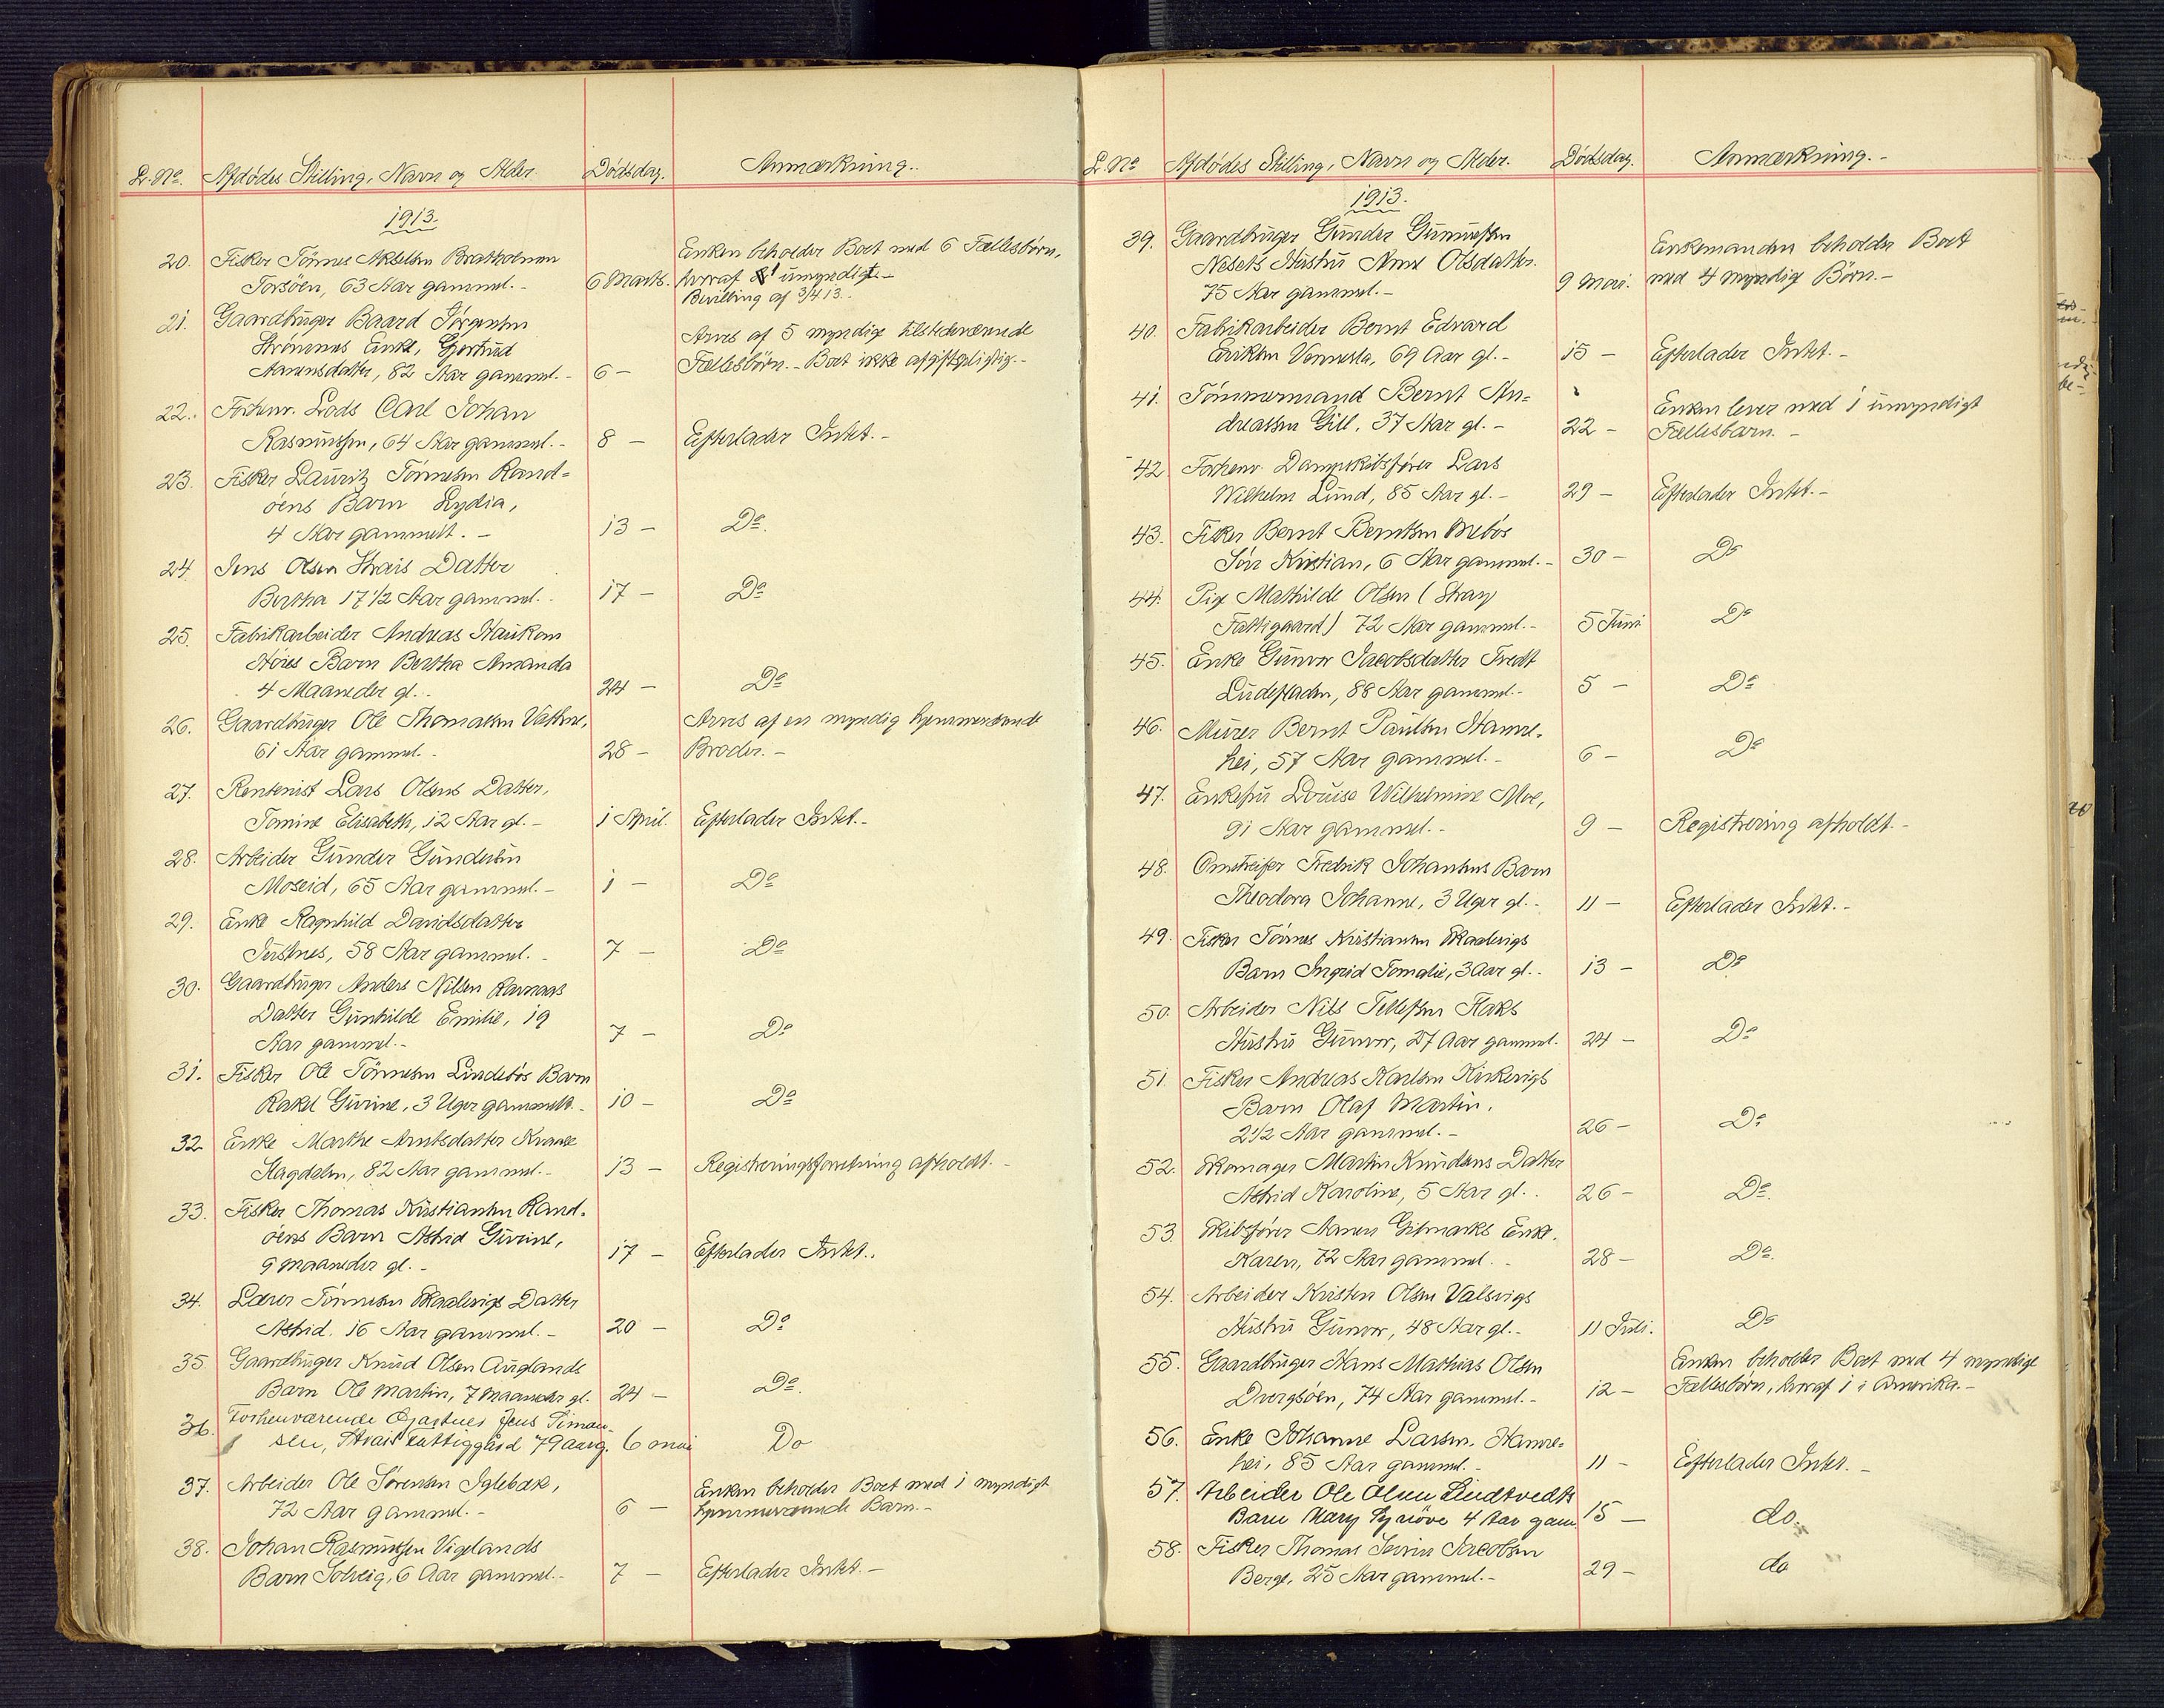 L. No. Afdödes Stilling, Navn og Alder. Dödsdag. Anmærkning.
1913.
20. Fisker Tönnes Akselsen Bratholmen
Torsöen, 63 Aar gammel.- 6 Marts.
Enken beholder Boet med 6 Fællesbörn,
hvoraf 1 umyndigt.-
Bevilling af 3/4 13.
21. Gaardbruger Baard Jörgensen
Strömmes Enke, Gjertrud
Aanensdatter, 82 Aar gammel.- 6 -
Arves af 5 myndige tilstedeværende
Fællesbörn.- Boet ikke afgiftspligtig.-
22. Forhenv. Lods Carl Johan
Rasmussen, 64 Aar gammel.- 8 - Efterlader Intet.-
23. Fisker Lauritz Tönnesen Rand=
öens Barn Lydia,
4 Aar gammelt.- 13 - Do.
24. Jens Olsen Strais Datter
Bertha 17 1/2 Aar gammel. 17 - Do
25. Fabrikarbeider Andreas Haukom
Höies Barn Bertha Amanda
4 Maaneder gl.. 24 - Do
26. Gaardbruger Ole Thomassen Vatne,
61 Aar gammel.- 28 -
Arves af en myndig hjemmeværende
Broder.-
27. Rentenist Lars Olsens Datter,
Tomine Elisabeth, 12 Aar gl.- 1 April. Efterlader Intet.-
28. Arbeider Gunder Gundersen
Moseid, 65 Aar gammel.- 1 - Do
29. Enke Ragnhild Davidsdatter
Justnes, 58 Aar gammel.- 7 - Do
30. Gaardbruger Anders Nilsen Ravnaas
Datter Gunhilde Emilie, 19
Aar gammel.- 7 - Do
31. Fisker Ole Tönnesen Lindebös Barn
Rakel Gurine, 3 Uger gammelt.- 10 - Do
32. Enke Marthe Arntsdatter Kraase
Slagdalen, 82 Aar gammel.- 13 - Registreringsforretning afholdt.-
33. Fisker Thomas Kristiansen Rand=
öens Barn Astrid Gurine,
9 maaneder gl.- 17 - Efterlader Intet..
34. Lærer Tönnesen Skaalevigs Datter
Astrid. 16 Aar gammel.- 20 - Do
35. Gaardbruger Knud Olsen Auglands
Barn Ole Martin, 7 maaneder gl. 24 - Do.
36. Forhenværende Gjæstner Jens Siman-
sen, Strais Fattiggård 79 aar g. 6 mai Do
37. Arbeider Ole Sörensen Iglebæk,
72 Aar gammel.- 6 -
Enken beholder Boet med 1 myndigt
hjemmeværende Barn.-
38. Johan Rasmussen Vigelands
Barn Solveig, 6 Aar gammel.- 7 - Efterlader Intet.-
L. No Afdödes Stilling, Navn og Alder. Dödsdag. Anmærkning.-
1913.
39. Gaardbruger Gunder Gunnufsen
Nesets Hustru Anne Olsdatter.
75 Aar gammel.- 9 Mai.
Enkemanden beholder Boet
med 4 myndige Börn.-
40. Fabrikarbeider Bernt Edvard
Eriksen Vennesla, 69 Aar gl.- 15 - Efterlader Intet.-
41. Tömmermand Bernt An=
dreassen Gill, 37 Aar gl.- 22 -
Enken lever med 1 umyndigt
Fællesbarn.-
42. Forhenv. Dampskibsförer Lars
Wilhelm Lund, 85 Aar gl.- 29 - Efterlader Intet.-
43. Fisker Bernt Berntsen Mebös
Sön Kristian, 6 Aar gammel.- 30 - Do
44. Pige Mathilde Olsen (Stray
Fattigaard) 72 Aar gammel.- 5 Juni Do
45. Enke Gunvor Jacobsdatter Tvedt
Ludeflaten, 88 Aar gammel.- 5 - Do
46. Murer Bernt Paulsen Hanne=
hei, 57 Aar gammel.- 6 - Do
47. Enkefru Louise Wilhelmine Moe,
91 Aar gammel.- 9 - Registrering afholdt.-
48. Omstreifer Fredrik Johansens Barn
Theodora Johanne, 3 Uger gl.- 11 - Efterlader Intet.-
49. Fisker Tönnes Kristiansen Skaalevigs
Barn Ingrid Tomalie, 3 Aar gl.- 13 - Do
50. Arbeider Nils Tellefsen Flaks
Hustru Gunvor, 27 Aar gammel. 24 - Do
51. Fisker Andreas Karlsen Kirkevigs
Barn Olaf Martin.
2 1/2 Aar gammel.- 26 - Do
52. Skomager Martin Knudsens Datter
Astrid Karoline, 5 Aar gl.. 26 - Do.
53. Skibsförer Aanen Gitmarks Enke.
Karen, 72 Aar gammel.- 28 - Do.
54. Arbeider Kristen Olsen Valsvigs
Hustru Gunvor, 48 Aar gl.- 11 Juli. Do
55. Gaardbruger Hans Mathias Olsen
Dvergsöen, 74 Aar gammel.- 12 -
Enken beholder Boet med 4 myndige
Fællesbörn, hvoraf 1 i Amerika.-
56. Enke Johanne Larsen. Hanne=
hei, 85 Aar gammel.- 11 - Efterlader Intet.-
57. Arbeider Ole Olsen Lindtvedts
Barn Mary Synöve 4 Aar gam. 15 - do.
58. Fisker Thomas Severin Jacobsen
Berge, 25 Aar gammel.- 29 - do